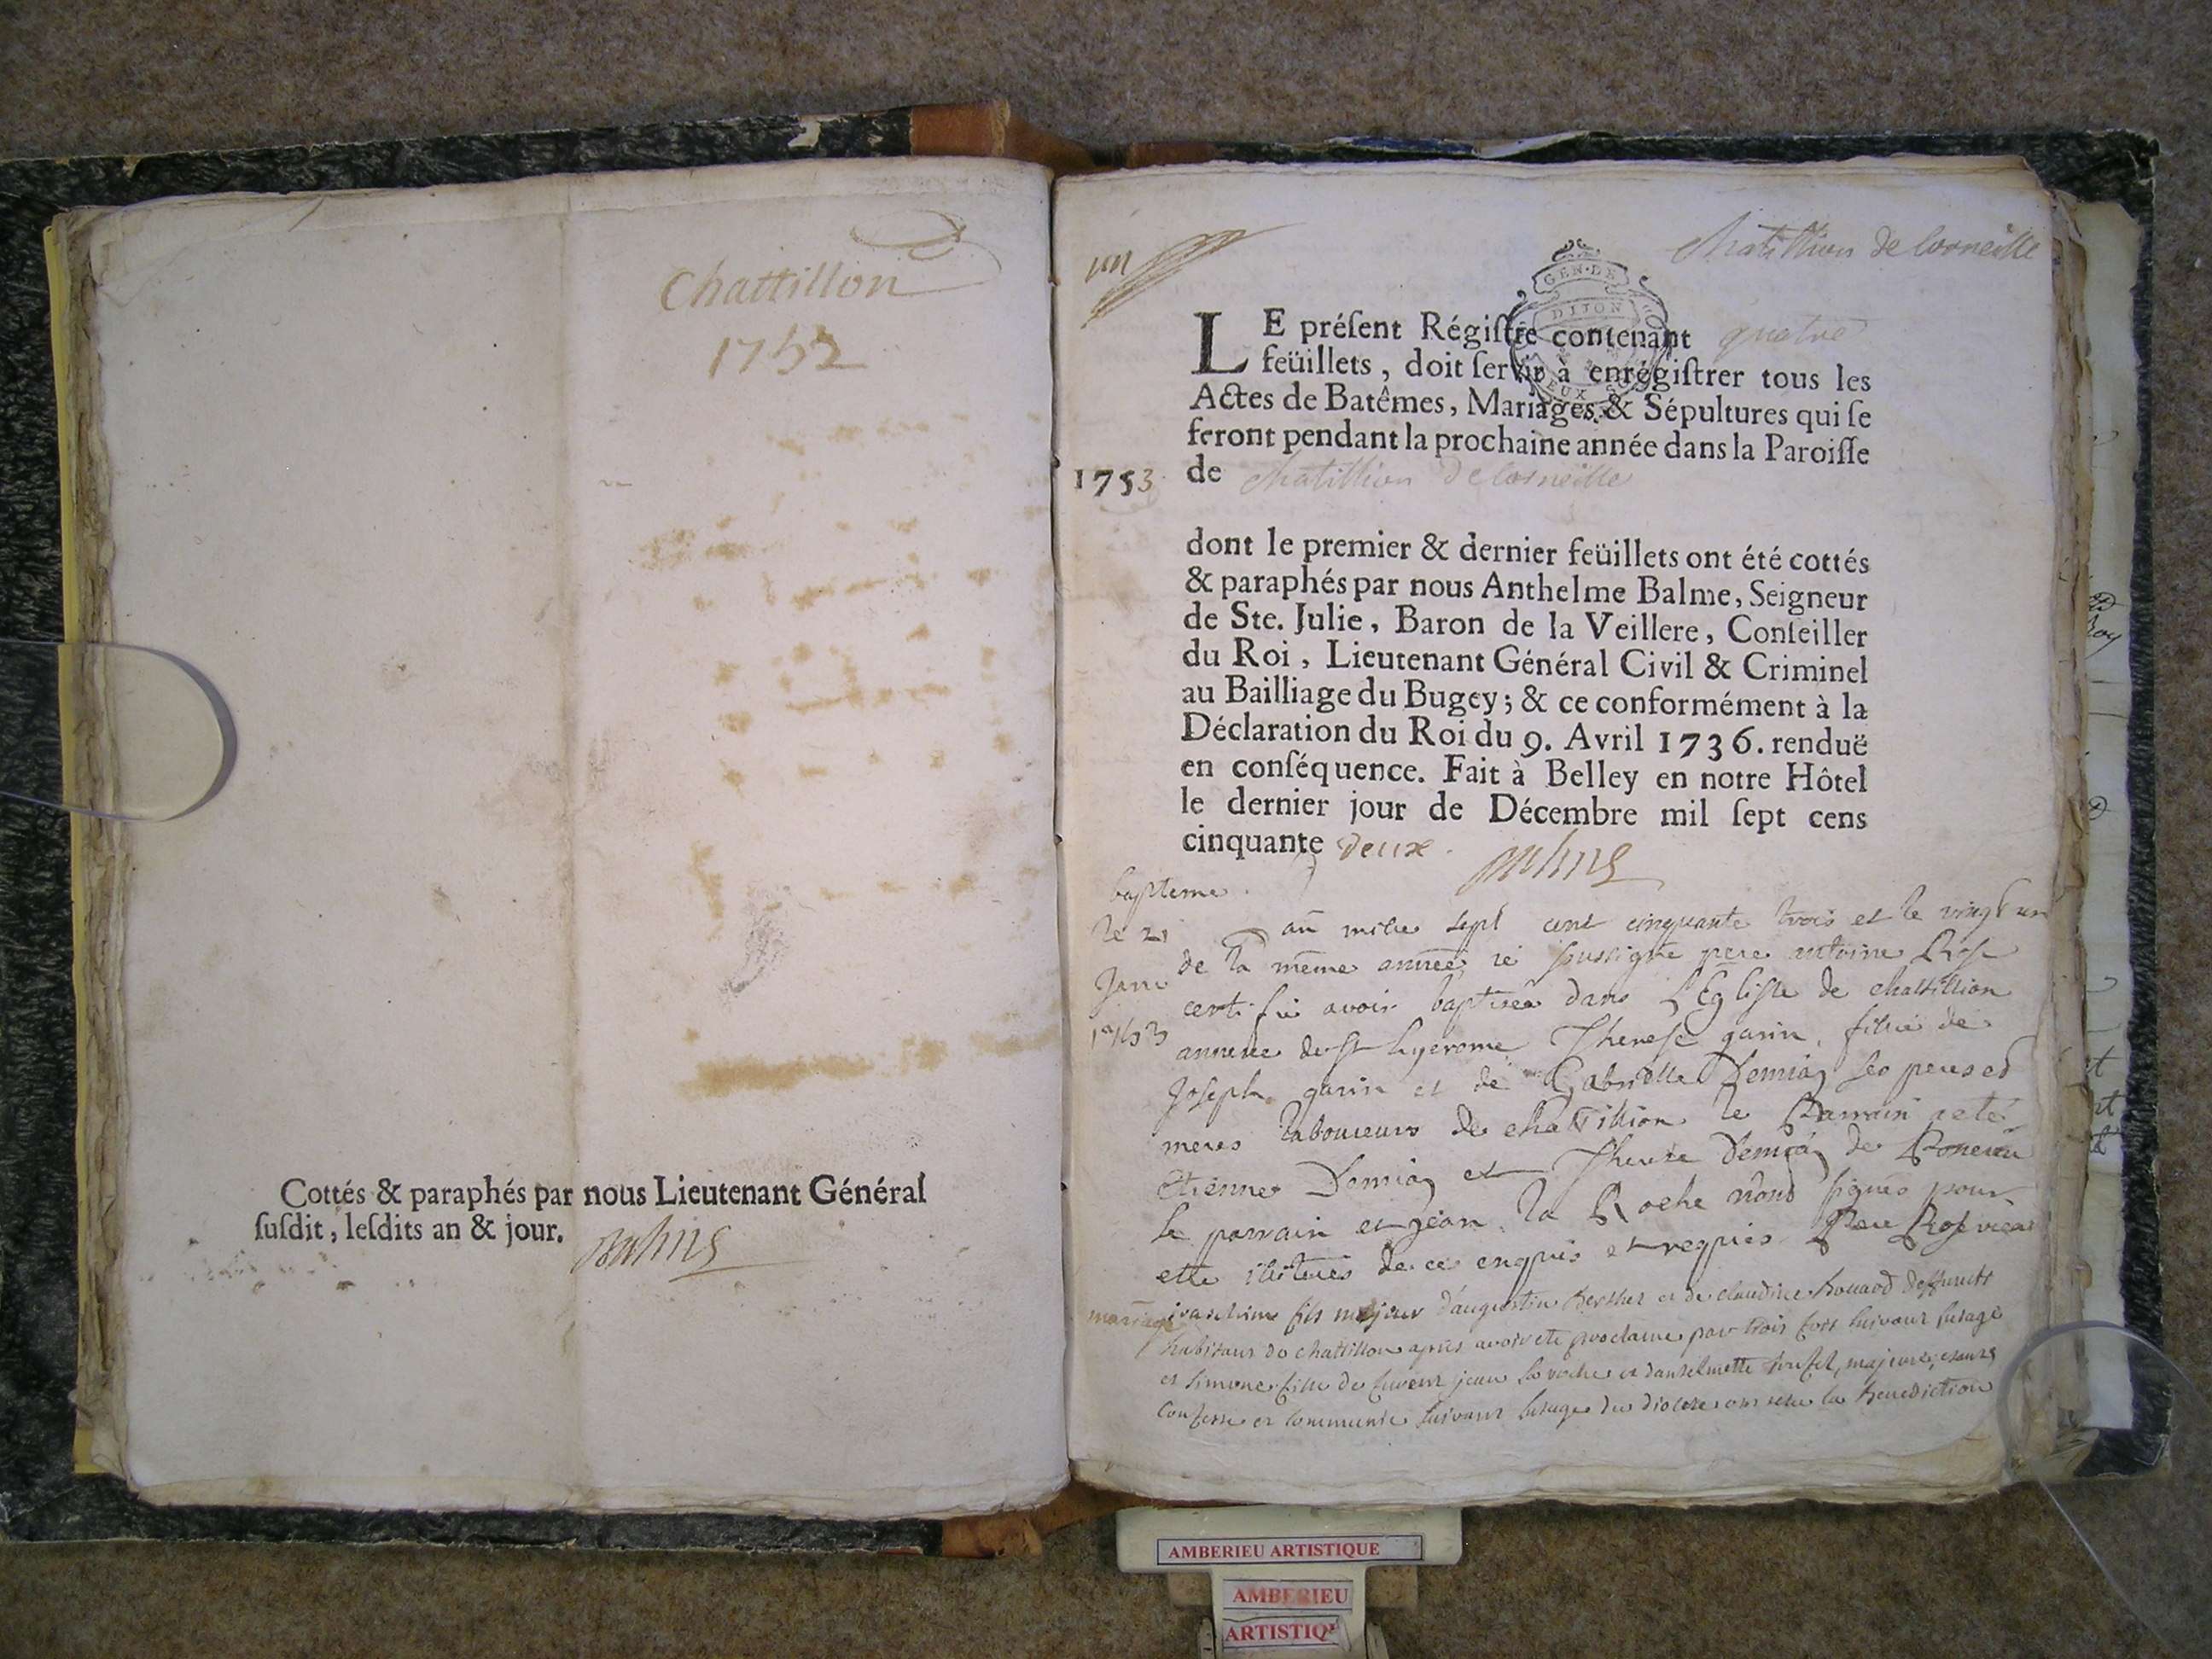 Chattillon
1752
Cottés & paraphés par nous Lieutenant Général
ſuſdit, leſdits an & jour.
Balme
un
Chatillion de Corneille
GEN·DE
DIJON
LE préſent Régiſtre contenant quatre
feüillets, doit ſervir à enrégiſtrer tous les
Actes de Batêmes, Mariages & Sépultures qui ſe
feront pendant la prochaine année dans la Paroiſſe
1753 de Chatillion de Corneille
dont le premier & dernier feüillets ont été cottés
& paraphés par nous Anthelme Balme, Seigneur
de Ste. Julie, Baron de la Veillere, Conſeiller
du Roi, Lieutenant Général Civil & Criminel
au Bailliage du Bugey; & ce conformément à la
Déclaration du Roi du 9. Avril 1736. renduë
en conſéquence. Fait à Belley en notre Hôtel
le dernier jour de Décembre mil ſept cens
cinquante deux.
Balme
bapteme
le 21
Janv
1753
an mille sept cent cinquante trois et le vingt un
de la même année je soussigné pere antoine Rose
certifie avoir baptisée dans L'Eglisse de chattillion
annexe de st hyerome Therese garin, fillie de
Joseph garin et de Gabrielle Demia ses peres et
meres laboureurs de chattillion le Parrain a eté
Etienne Demia et Therese Demia de
le parrain et jean la Roche nont signés pour
etre illiterés de ce enquis et requis Pere Rose vicar
mariage
joaschime fils majeur d'augustin berthet et de claudine bouard deffunctt
habitans de chattillon après avoir eté proclamé par trois fois suivant lusage
et simone fille de jean la roche et danthelmette majeure
confessé et communié suivant lusage du diocese ont reçu la benediction
AMBERIEU ARTISTIQUE
AMBERIEU
ARTISTIQ